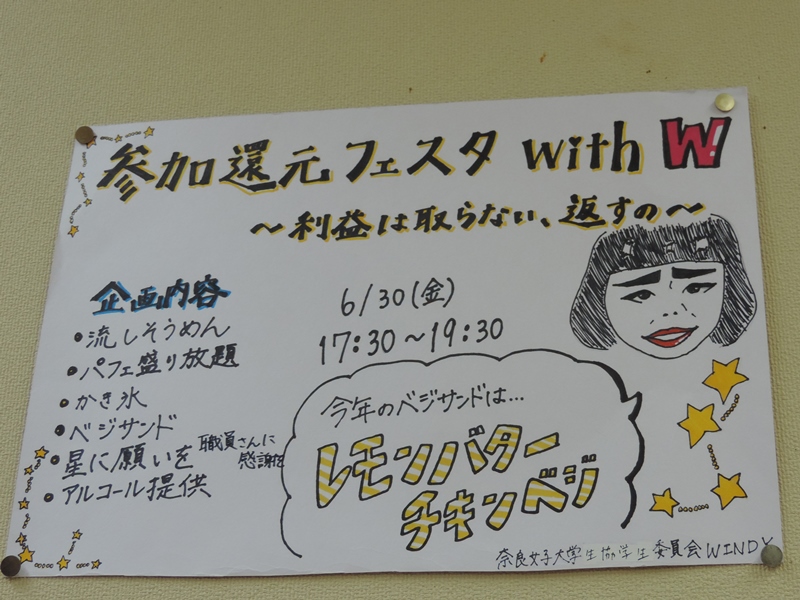 参加還元フェスタ with W!
～利益は取らない、返すの～
企画内容
・流しそうめん
・パフェ盛り放題
・かき氷
・ベジサンド
・星に願いを 職員さんに感謝を
・アルコール提供
6/30(金)
17:30～19:30
今年のベジサンドは...
レモンバター
チキンベジ
奈良女子大学生協学生委員会WINDY